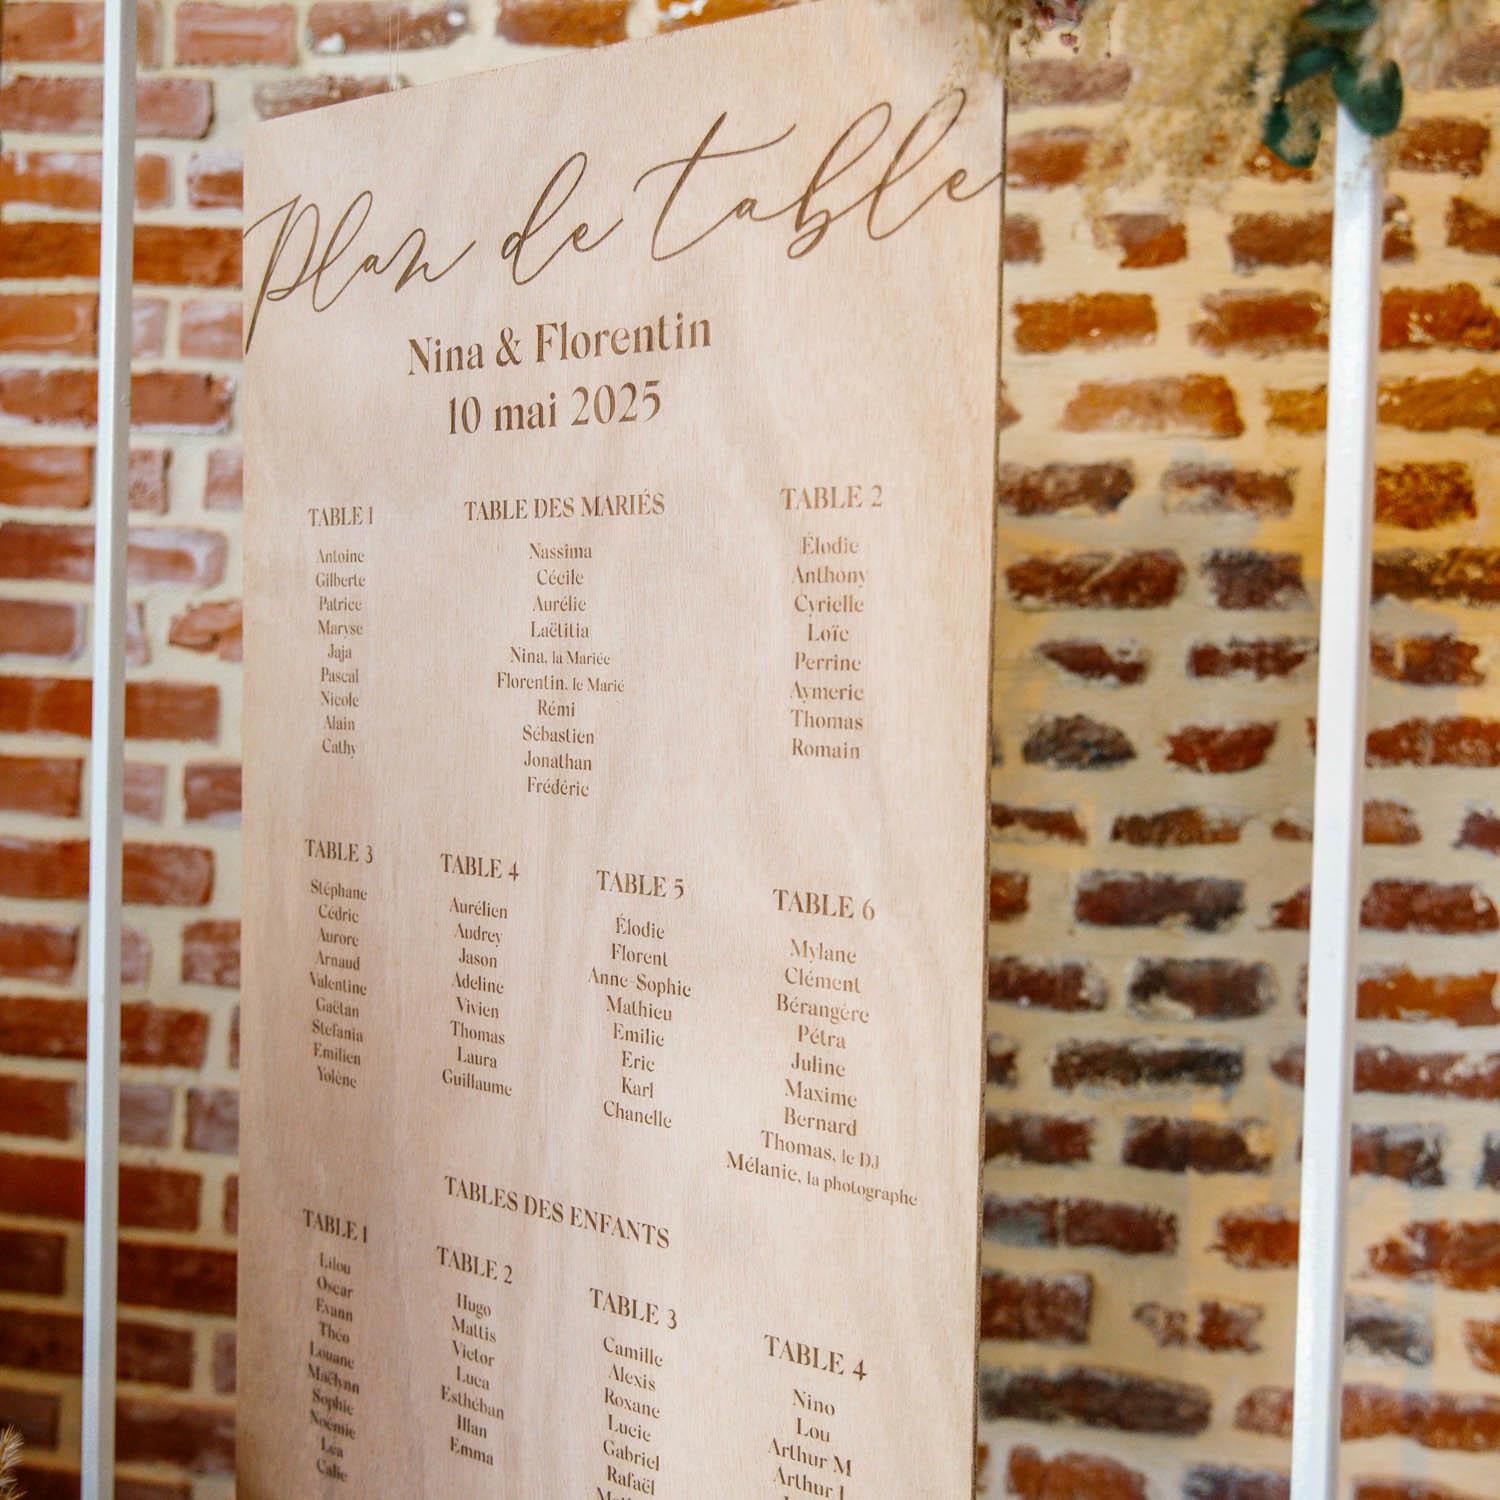 Plan de table
Nina & Florentin
10 mai 2025
TABLE 1
Antoine
Gilberte
Patrice
Maryse
Jaja
Pascal
Nicole
Alain
Cathy
TABLE DES MARIÉS
Nassima
Cécile
Aurélie
Laëtitia
Nina, la Mariée
Florentin, le Marié
Rémi
Sébastien
Jonathan
Frédéric
TABLE 2
Élodie
Anthony
Cyrielle
Loïc
Perrine
Aymeric
Thomas
Romain
TABLE 3
Stéphane
Cédric
Aurore
Arnaud
Valentine
Gaëtan
Stefania
Emilien
Yolène
TABLE 4
Aurélien
Audrey
Jason
Adeline
Vivien
Thomas
Laura
Guillaume
TABLE 5
Élodie
Florent
Anne-Sophie
Mathieu
Emilie
Eric
Karl
Chanelle
TABLE 6
Mylane
Clément
Bérangère
Pétra
Juline
Maxime
Bernard
Thomas, le DJ
Mélanie, la photographe
TABLES DES ENFANTS
TABLE 1
Lilou
Oscar
Evann
Théo
Louane
Maëlynn
Sophie
Noémie
Léa
Calie
TABLE 2
Hugo
Mattis
Victor
Luca
Esthéban
Illan
Emma
TABLE 3
Camille
Alexis
Roxane
Lucie
Gabriel
Rafaël
TABLE 4
Nino
Lou
Arthur M
Arthur